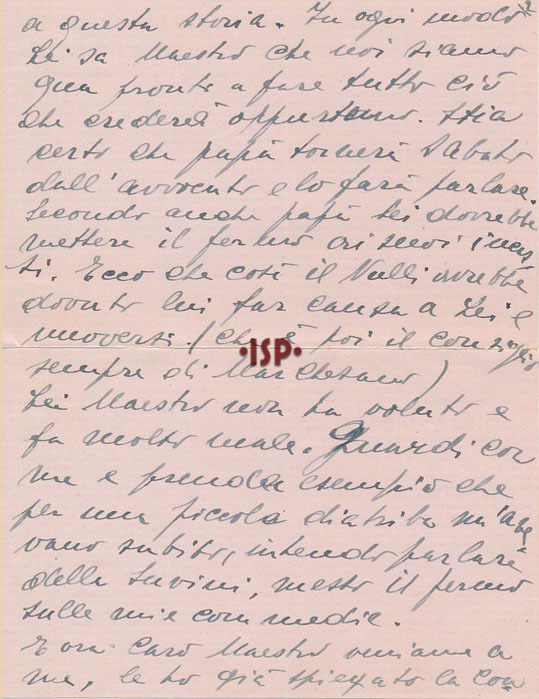 a questa storia. In ogni modo
Lei sa Maestro che noi siamo
qua pronti a fare tutto ciò
che crederà opportuno. Stia
certo che papà tornerà Sabato
dall'avvocato e lo farà parlare.
Secondo anche papà Lei dovrebbe
mettere il fermo ai suoi incas
si. Ecco che così il Nulli avrebbe
dovuto lui far causa a Lei e
muoversi. (che è poi il consiglio
·ISP·
sempre di Marchesano)
Lei Maestro non ha voluto e
fa molto male. Guardi con
me e prenda esempio che
per una piccola diatriba m'ave
vano subito, intendo parlare
della Suvini, messo il fermo
sulle mie commedie.
E ora caro Maestro veniamo a
me, le ho già spiegato la con